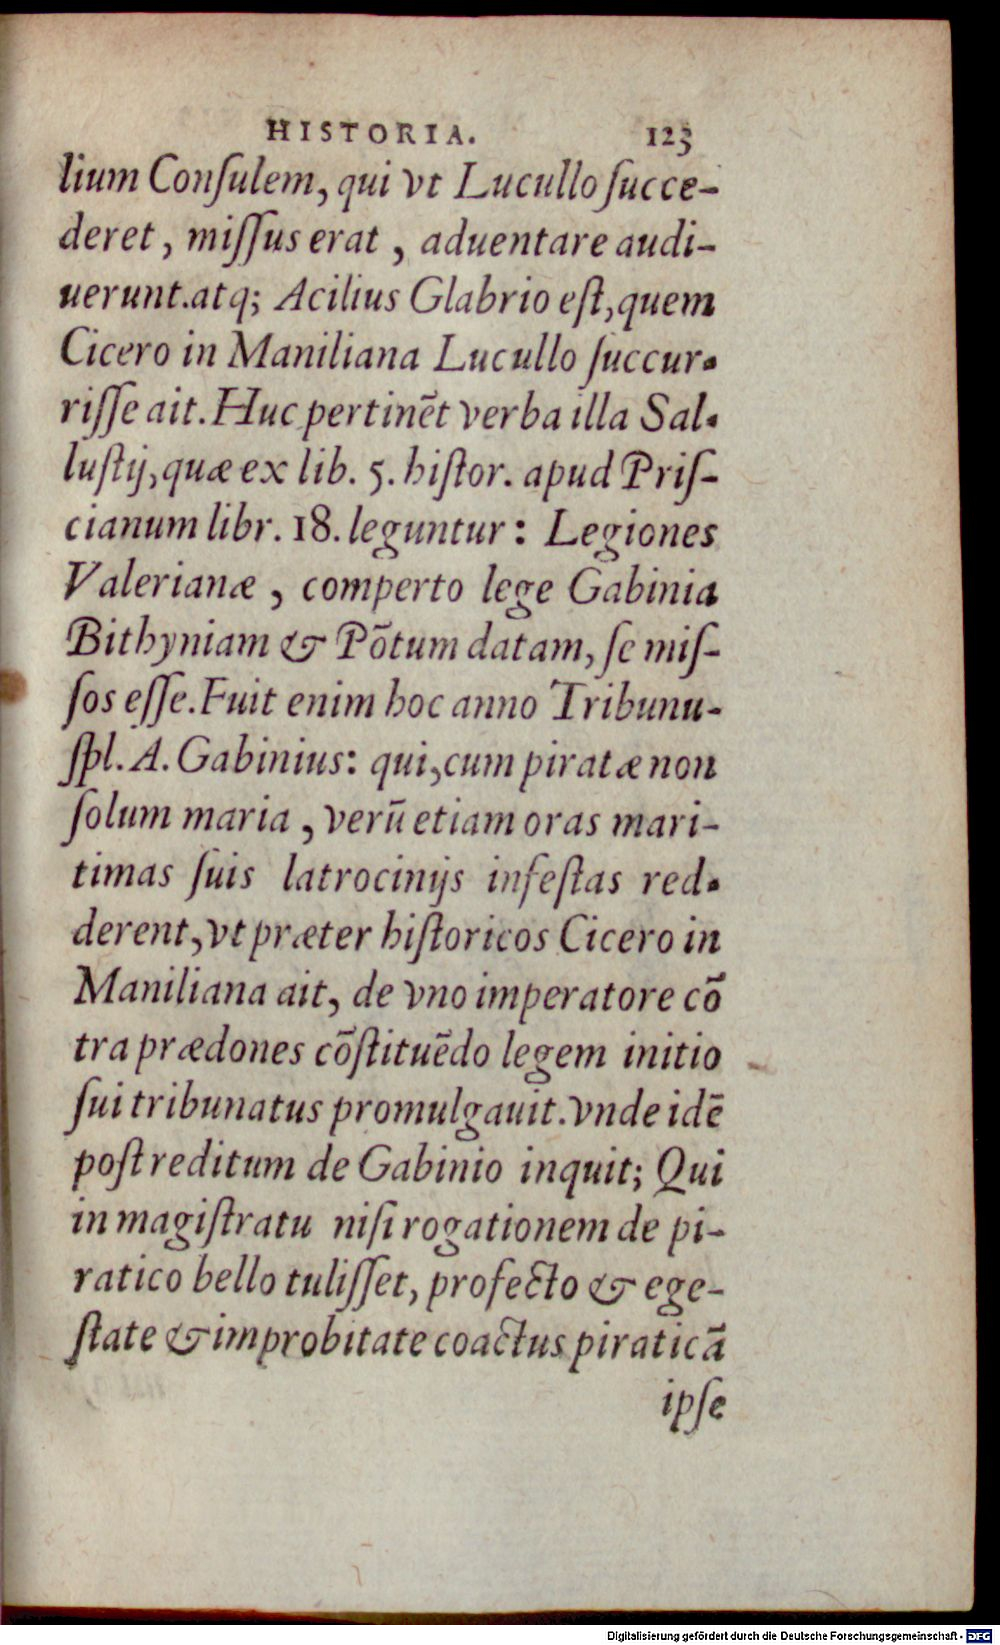 HISTORIA. 123
lium Conſulem, qui vt Lucullo ſucce-
deret, miſſus erat, aduentare audi-
uerunt. atq; Acilius Glabrio eſt, quem
Cicero in Maniliana Lucullo ſuccur-
riſſe ait. Huc pertinēt verba illa Sal-
luſtij, quæ ex lib. 5. hiſtor. apud Priſ-
cianum libr. 18. leguntur: Legiones
Valerianæ, comperto lege Gabinia
Bithyniam & Pōtum datam, ſe miſ-
ſos eſſe. Fuit enim hoc anno Tribunu-
ſpl. A. Gabinius: qui, cum piratæ non
ſolum maria, verū etiam oras mari-
timas ſuis latrocinijs infeſtas red-
derent, vt præter hiſtoricos Cicero in
Maniliana ait, de vno imperatore cō
tra prædones cōſtituēdo legem initio
ſui tribunatus promulgauit. Vnde idē
poſt reditum de Gabinio inquit; Qui
in magiſtratu niſi rogationem de pi-
ratico bello tuliſſet, profecto & ege-
ſtate & improbitate coactus piraticā
ipſe
Digitalisierung gefördert durch die Deutsche Forschungsgemeinschaft - DFG